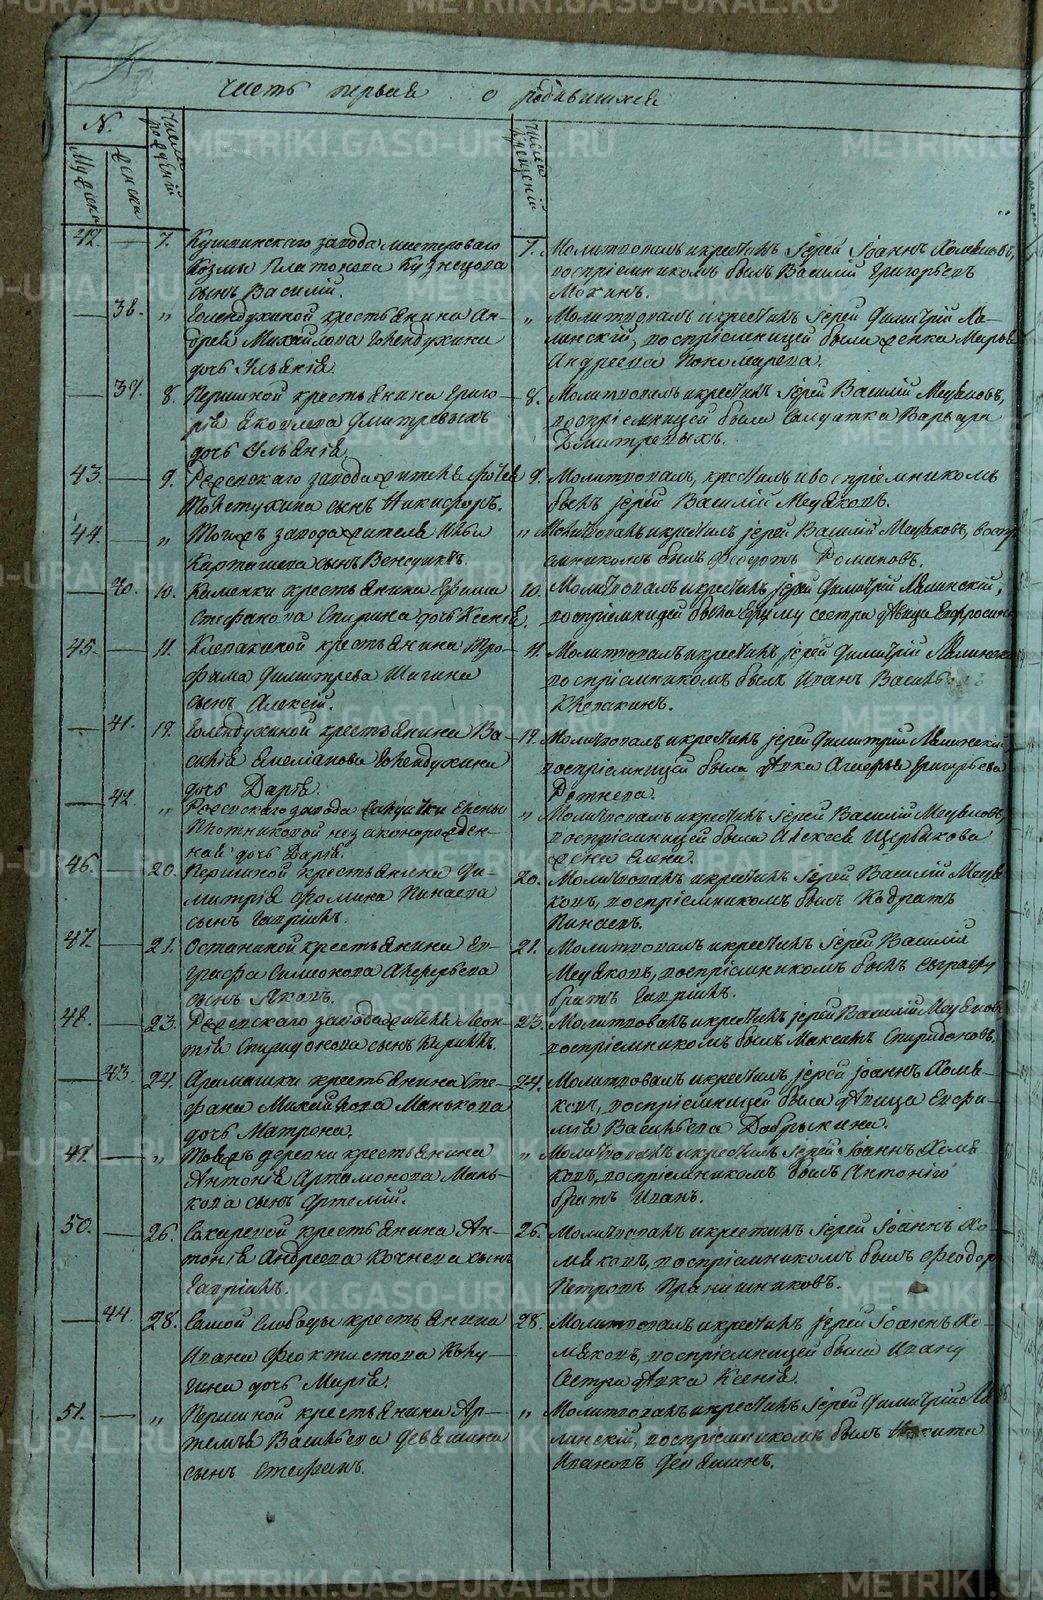 METRIKI.GASO-URAL.RU
Часть первая о родившихся
N.
Мужеска
Женска
Число рождений
Число крещений
42. 7. Кушвинскаго завода мастероваго
Козмы Платонова Кузнецова
сынъ Василий.
7. Молитвовалъ и крестилъ Іерей Іоаннъ Хомяковъ,
воспріемникомъ былъ Василій Григорьевъ
Мокинъ.
38. " Голендухиной крестьянина Ан-
дрея Михайлова Голендухина
дочь Ульянія.
" Молитвовалъ и крестилъ Іерей Димитрій Ля-
линскій, воспріемницей была женка Марья
Андреева Пономарева.
39. 8. Першиной крестьянина Григо-
рія Яковлева Дмитревыхъ
дочь Ульянія.
8. Молитвовалъ и крестилъ Іерей Василій Медяковъ,
воспріемницей была Салдатка Варвара
Дмитревыхъ.
43. 9. Режевскаго завода жителя
сынъ Никифоръ.
9. Молитвовалъ, крестилъ и воспріемникомъ
былъ Іерей Василій Медяковъ.
44. " Тогожъ завода жителя
Карташева сынъ
" Молитвовалъ и крестилъ Іерей Василій Медяковъ, воспрі
емникомъ былъ Феодотъ Романовъ.
40. 10. Каменки крестьянина Ефима
Стефанова Спирина дочь Ксенія.
10. Молитвовалъ и крестилъ Іерей Димитрій Лялинскій,
воспріемницей была Ефиму сестра дѣвица Евфросинія
45. 11. Клевакиной крестьянина Тро-
фима Димитрева Шигина
сынъ Алексій.
11. Молитвовалъ и крестилъ Іерей Димитрій Лялинскій
воспріемникомъ былъ Иванъ Васильевъ
Клевакинъ.
41. 19. Голендухиной крестьянина Ва-
силія Емеліанова Голендухина
дочь Дарія.
19. Молитвовалъ и крестилъ Іерей Димитрій Лялинскій
воспріемницей была дѣвка Агаѳья Григорьева
42. " Режевскаго завода Салдатки Елены
Плотниковой незаконорожден-
ная дочь Дарія.
" Молитвовалъ и крестилъ Іерей Василій Медяковъ,
воспріемницей была Алексея Щербакова
жена Елена.
46. 20. Першиной крестьянина Ди-
митрія Фомина Пинаева
сынъ Гавріилъ.
20. Молитвовалъ и крестилъ Іерей Василій Медя-
ковъ, воспріемникомъ былъ Кодратъ
Пинаевъ.
47. 21. Останиной крестьянина Ев-
графа Симеонова Алферьева
сынъ Яковъ.
21. Молитвовалъ и крестилъ Іерей Василій
Медяковъ, воспріемникомъ былъ Евграфу
братъ Гавріилъ.
48. 23. Режевскаго завода жителя Леон-
тія Спиридонова сынъ Кирилъ.
23. Молитвовалъ и крестилъ Іерей Василій Медяковъ
воспріемникомъ былъ Максимъ Спиридоновъ.
43. 24. Арамашки крестьянина Сте-
фана Михайлова Манькова
дочь Матрона.
24. Молитвовалъ и крестилъ Іерей Іоаннъ Хомя-
ковъ, воспріемницей была дѣвица Евфи-
мія Васильева Добрынина.
49. " Тояжъ деревни крестьянина
Антонія Артамонова Мань-
кова сынъ Артемій.
" Молитвовалъ и крестилъ Іерей Іоаннъ Хомя
ковъ, воспріемникомъ былъ Антонію
братъ Иванъ.
50. 26. Сохаревой крестьянина Ан-
тонія Андреева Кочнева сынъ
Гавріилъ.
26. Молитвовалъ и крестилъ Іерей Іоаннъ Хо-
мяковъ, воспріемникомъ былъ Феодоръ
Петровъ Пряничниковъ.
44. 28. Самой Слободы крестьянина
Ивана Феоктистова Колу-
гина дочь Марія.
28. Молитвовалъ и крестилъ Іерей Іоаннъ Хо-
мяковъ, воспріемницей была Ивану
Сестра дѣвка Ксенія.
51. " Першиной крестьянина Ар-
темья Васильева Девяшина
сынъ Стефанъ.
" Молитвовалъ и крестилъ Іерей Димитрій Ля-
линскій, воспріемникомъ былъ Никита
Ивановъ Девяшинъ.